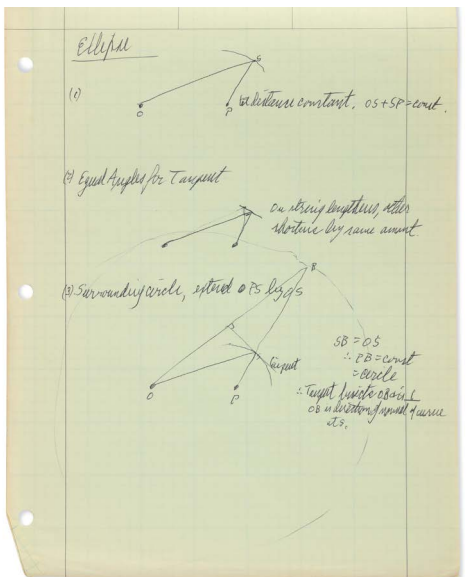 Ellipse
S
(1)
O
P
distance constant, OS+SP=const.
(2) Equal Angles for Tangent
One string lengthens, other
shortens by same amount
(3) Surrounding circle, extend PS by OS
B
S
Tangent
O
P
SB = OS
∴ PB = const
= circle
∴ Tangent bisects OB & is ⊥
OB is direction of normal of curve
at S.